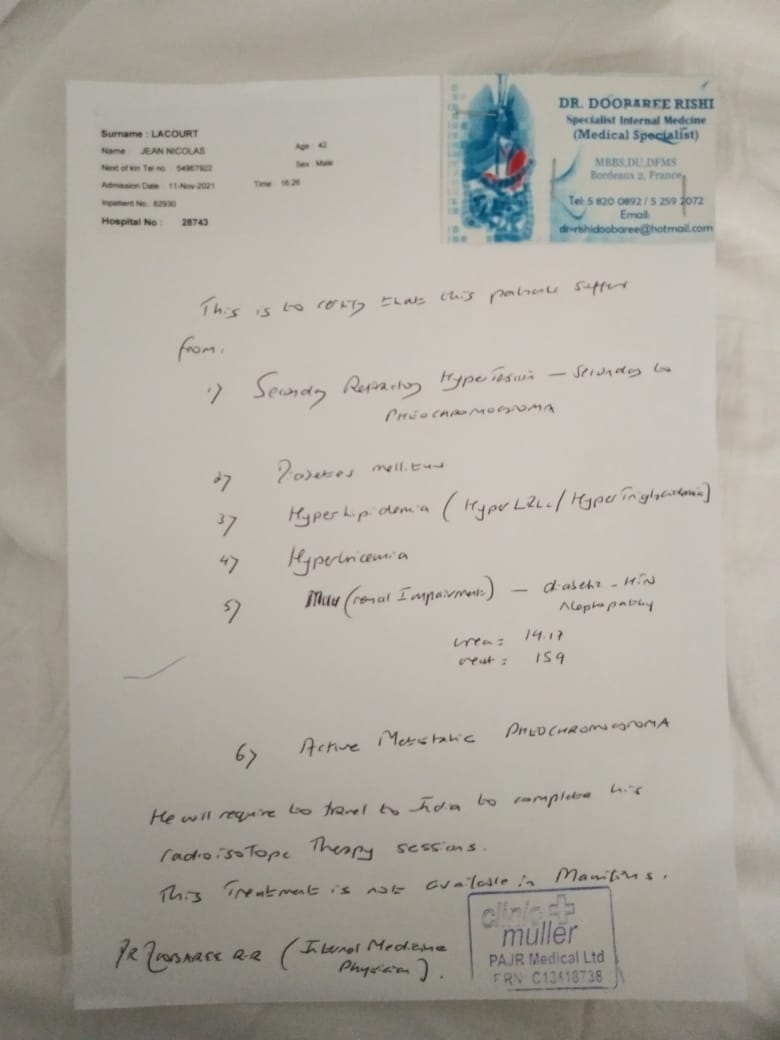 Surname : LACOURT
Name JEAN NICOLAS
Age : 42
Next of kin Tel no : 54967922
Sex : Male
Admission Date : 11-Nov-2021
Time 16:26
Inpatient No : 62930
Hospital No : 28743
DR. DOOBAREE RISHI
Specialist Internal Medcine
(Medical Specialist)
MBBS,DU,DFMS
Bordeaux 2, France
Tel: 5 820 0892 / 5 259 2072
Email:
dr-rishidoobaree@hotmail.com
This is to certify that this patient suffer
from:
1) Secondary Refractory Hypertension — Secondary to
PHEOCHROMOCYTOMA
2) Diabetes mellitus
3) Hyperlipidemia (Hyper LDL / Hypertriglyceridemia)
4) Hyperuricemia
5) (renal Impairment) — diabetic - HTN
Nephropathy
urea = 14.17
creat = 159
6) Active Metastatic PHEOCHROMOCYTOMA
He will require to travel to India to complete his
radioisotope Therapy sessions.
This Treatment is not available in Mauritius.
DR DOOBAREE R.R (Internal Medicine
Physician).
clinic
müller
PAJR Medical Ltd
FRN: C13418738